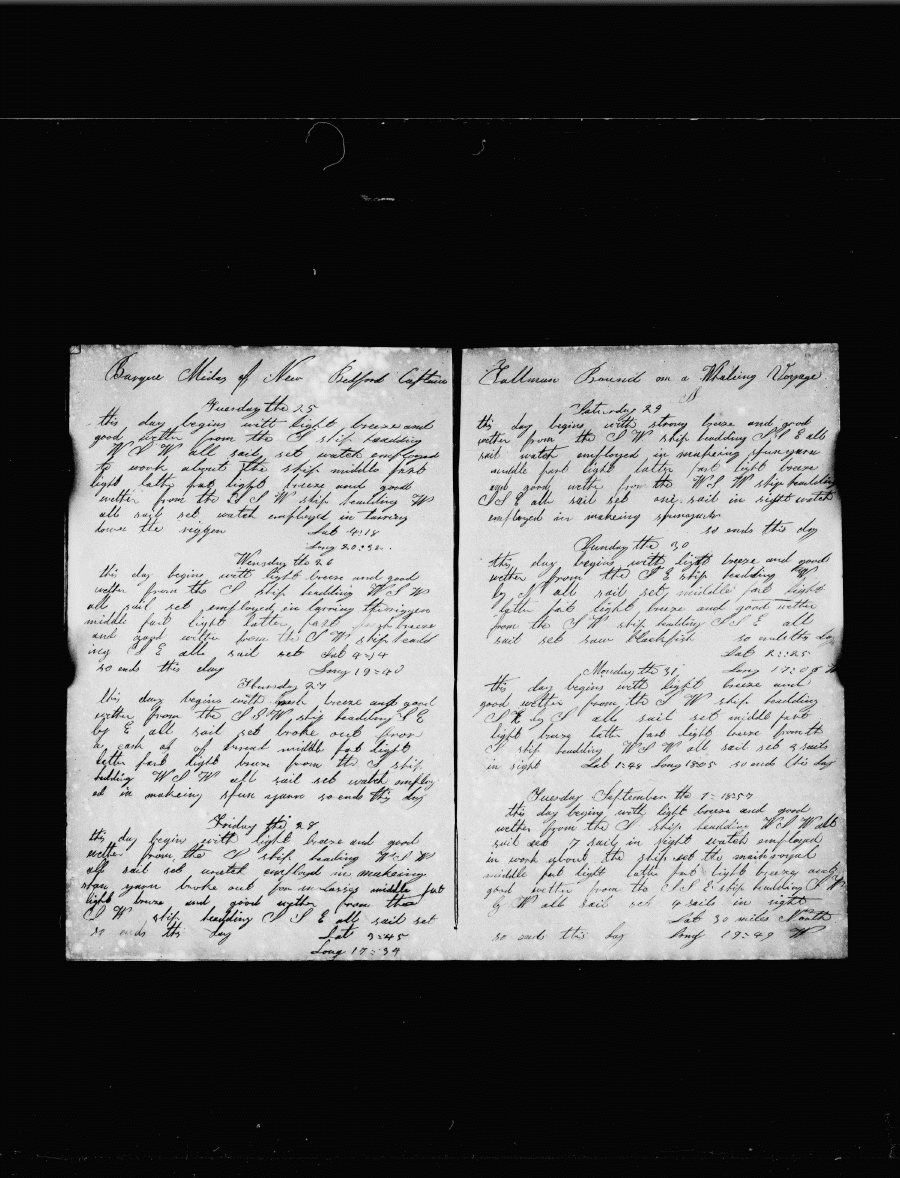 Barque Midas of New Bedford Captain
Tuesday the 25
this day begins with light breeze and
good wether from the S ship headding
W S W all sail set watch employed
to work about the ship middle part
light latter part light breeze and good
wether from the S S W ship headding W
all sail set watch employed in tarring
down the riggen Lat 4:18
Long 20:32
Wensday the 26
this day begins with light breeze and good
wether from the S ship headding W S W
all sail set employed in tarring the riggen
middle part light latter part light breeze
and good wether from the S W ship headd
ing S E all sail set Lat 4:34
so ends this day Long 19:40
Thursday 27
this day begins with fresh breeze and good
wether from the S S W ship headding S E
by E all sail set broke out from
a cask of of bread middle part light
latter part light breeze from the S ship
hedding W S W all sail set watch employ
ed in makeing spun yarn so ends this day
Friday the 28
this day begin with light breeze and good
wether from the S ship heading W S W
all sail set watch employd in makeing
spun yarn broke out for molasses middle part
light breeze and good wether from the
S W ship headding S S E all sail set
so ends this day Lat 3:45
Long 17:39
Tallman Bound on a Whaleing Voyage
Saturday 29
this day begins with strong breeze and good
wether from the S W ship headding S S E all
sail watch employed in makeing spun yarn
middle part light latter part light breeze
and good wether from the W S W ship headding
S S E all sail set one sail in sight watch
employed in makeing spunyarn
so ends this day
Sunday the 30
this day begins with light breeze and good
wether from the S E ship headding W
by N all sail set middle part light
latter part light breeze and good wether
from the S W ship headding S S E all
sail set saw blackfish so ends this day
Lat 2:25
Monday the 31 Long 17:08 W
this day begins with light breeze and
good wether from the S W ship headding
S E by S all sail set middle part
light breeze latter part light breeze from th
S ship headding W S W all sail set 2 sails
in sight Lat 1:48 Long 18:05 so ends this day
Tuesday September the 1 - 1857
this day begins with light breeze and good
wether from the S ship headding W S W all
sail set 7 sail in sight watch employed
in work about the ship set the main royal
middle part light latter part light breeze and
good wether from the S S E ship headding S W
by W all sail set 4 sails in sight
Lat 30 miles North
so ends this day Long 19:49 W